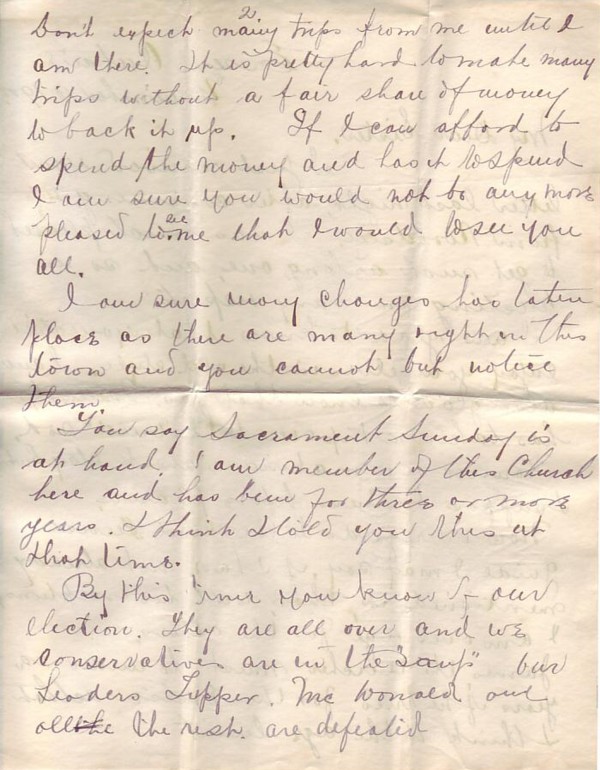 2
Don't expect many trips from me until I
am there. It is pretty hard to make many
trips without a fair share of money
to back it up. If I can afford to
spend the money and has it to spend
I am sure you would not be any more
pleased to see me that I would to see you
all.
I am sure many changes has taken
place as there are many right in this
town and you cannot but notice
them
You say Sacrament Sunday is
at hand. I am member of this Church
here and has been for three or more
years. I think I told you this at
that time.
By this time you know of our
election. They are all over and we
conservatives are in the "soup" our
Leaders Tupper. Mc Donald and
all the the rest. are defeated